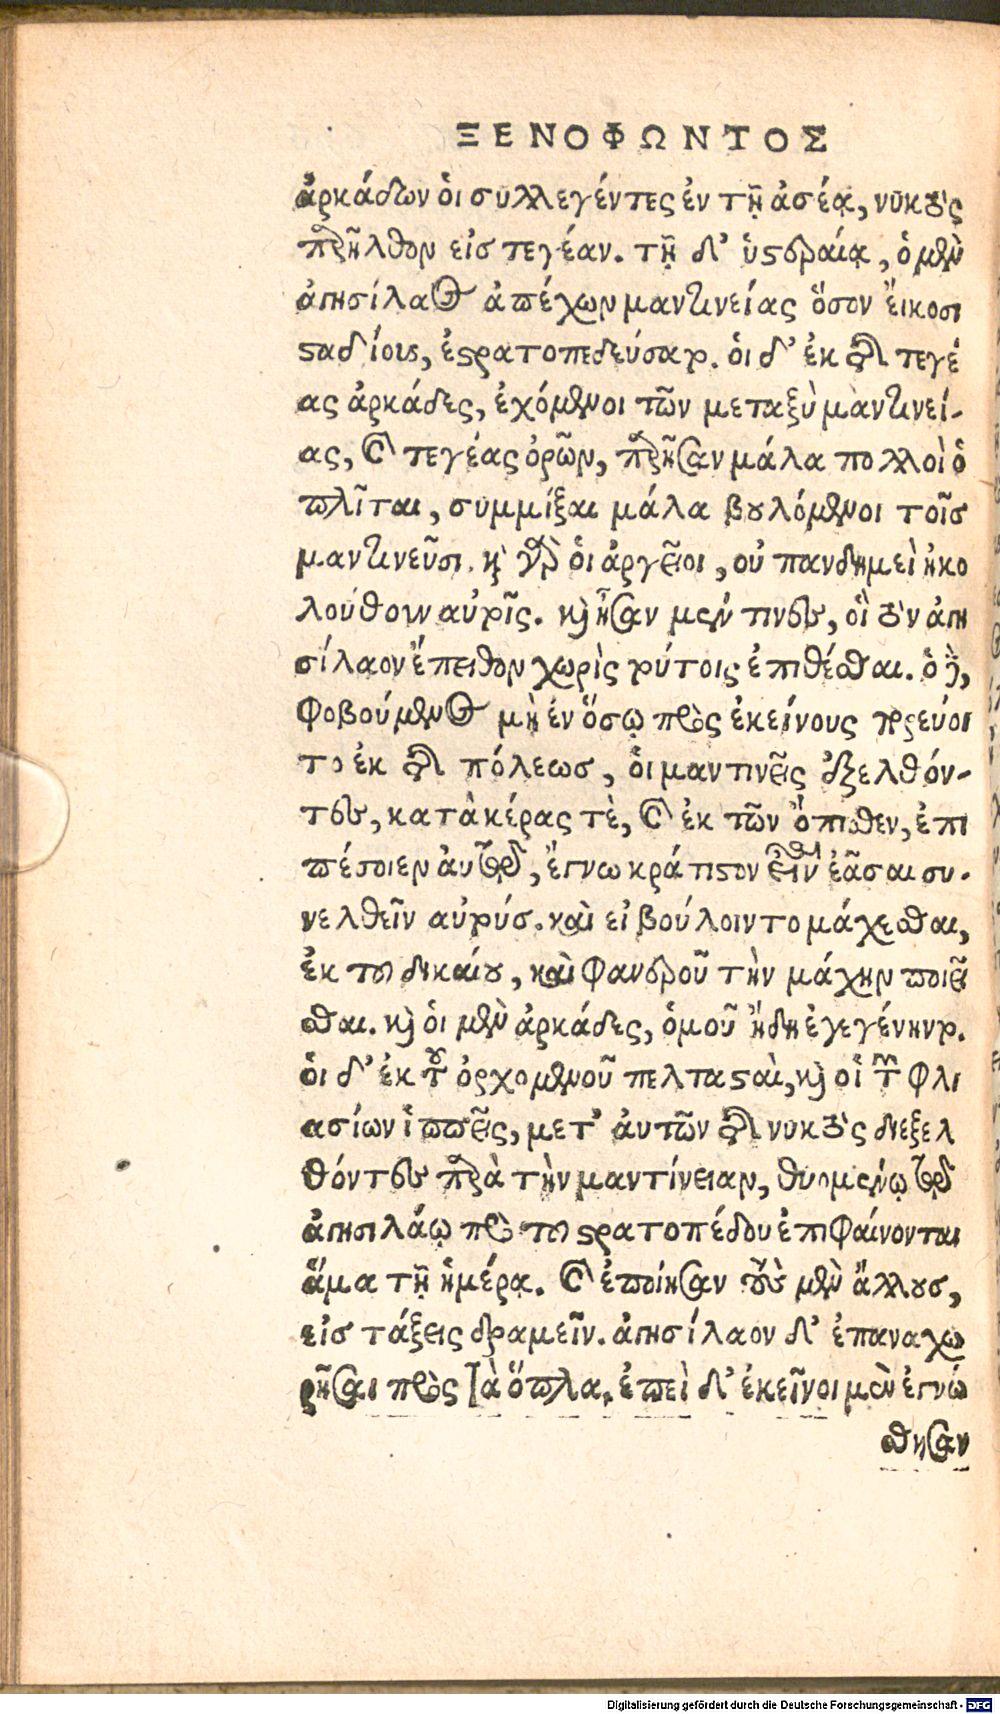 ΞΕΝΟΦΩΝΤΟΣ
ἀρκάδων ὁι συλλεγέντες ἐν τῇ ἀσέᾳ, νυκτὸς
παρῆλθον εἰσ τεγέαν. τῇ δ' ὑστεραίᾳ, ὁ μὲν
ἀγησίλαος ἀπέχων μαντινείας ὅσον ἔικοσι
σταδίους, ἐστρατοπεδεύσατο. ὁι δ' ἐκ τῆς τεγέ
ας ἀρκάδες, ἐχόμενοι τῶν μεταξὺ μαντινεί-
ας, καὶ τεγέας ὀρῶν, παρῆσαν μάλα πολλοὶ ὁ
πλῖται, συμμίξαι μάλα βουλόμενοι τοῖσ
μαντινεῦσι. καὶ γὰρ ὁι ἀργεῖοι, οὐ πανδημεὶ ἠκο
λούθουν αὐτοῖς. καὶ ἦσαν μέν τινες, οἳ τὸν ἀγη
σίλαον ἔπειθον χωρὶς τούτοις ἐπιθέσθαι. ὁ δὲ,
φοβούμενος μὴ ἐν ὅσῳ πρὸς ἐκείνους πορεύοι
το ἐκ τῆς πόλεωσ, ὁι μαντινεῖς ἐξελθόν-
τες, κατὰ κέρας τὲ, καὶ ἐκ τῶν ὄπισθεν, ἐπι
πέσοιεν ἀυτῷ, ἔγνω κράτιστον εἶναι ἐᾶσαι συ-
νελθεῖν αὐτούσ. καὶ εἰ βούλοιντο μάχεσθαι,
ἐκ τοῦ δικαίου, καὶ φανεροῦ τὴν μάχην ποιεῖ
σθαι. καὶ ὁι μὲν ἀρκάδες, ὁμοῦ ἤδη ἐγεγένηντο.
ὁι δ' ἐκ τοῦ ὀρχομενοῦ πελτασταὶ, καὶ οἱ τῶν φλι
ασίων ἱππεῖς, μετ' ἀυτῶν τῆς νυκτὸς διεξελ
θόντες παρὰ τὴν μαντίνειαν, θυομένῳ τῷ
ἀγησιλάῳ πρὸ τοῦ στρατοπέδου ἐπιφαίνονται
ἅμα τῇ ἡμέρᾳ. καὶ ἐποίησαν τοὺς μὲν ἄλλουσ,
εἰσ τάξεις δραμεῖν. ἀγησίλαον δ' ἐπαναχω
ρῆσαι πρὸς τὰ ὅπλα. ἐπεὶ δ' ἐκεῖνοι μὲν ἐγνώ
σθησαν
Digitalisierung gefördert durch die Deutsche Forschungsgemeinschaft - DFG